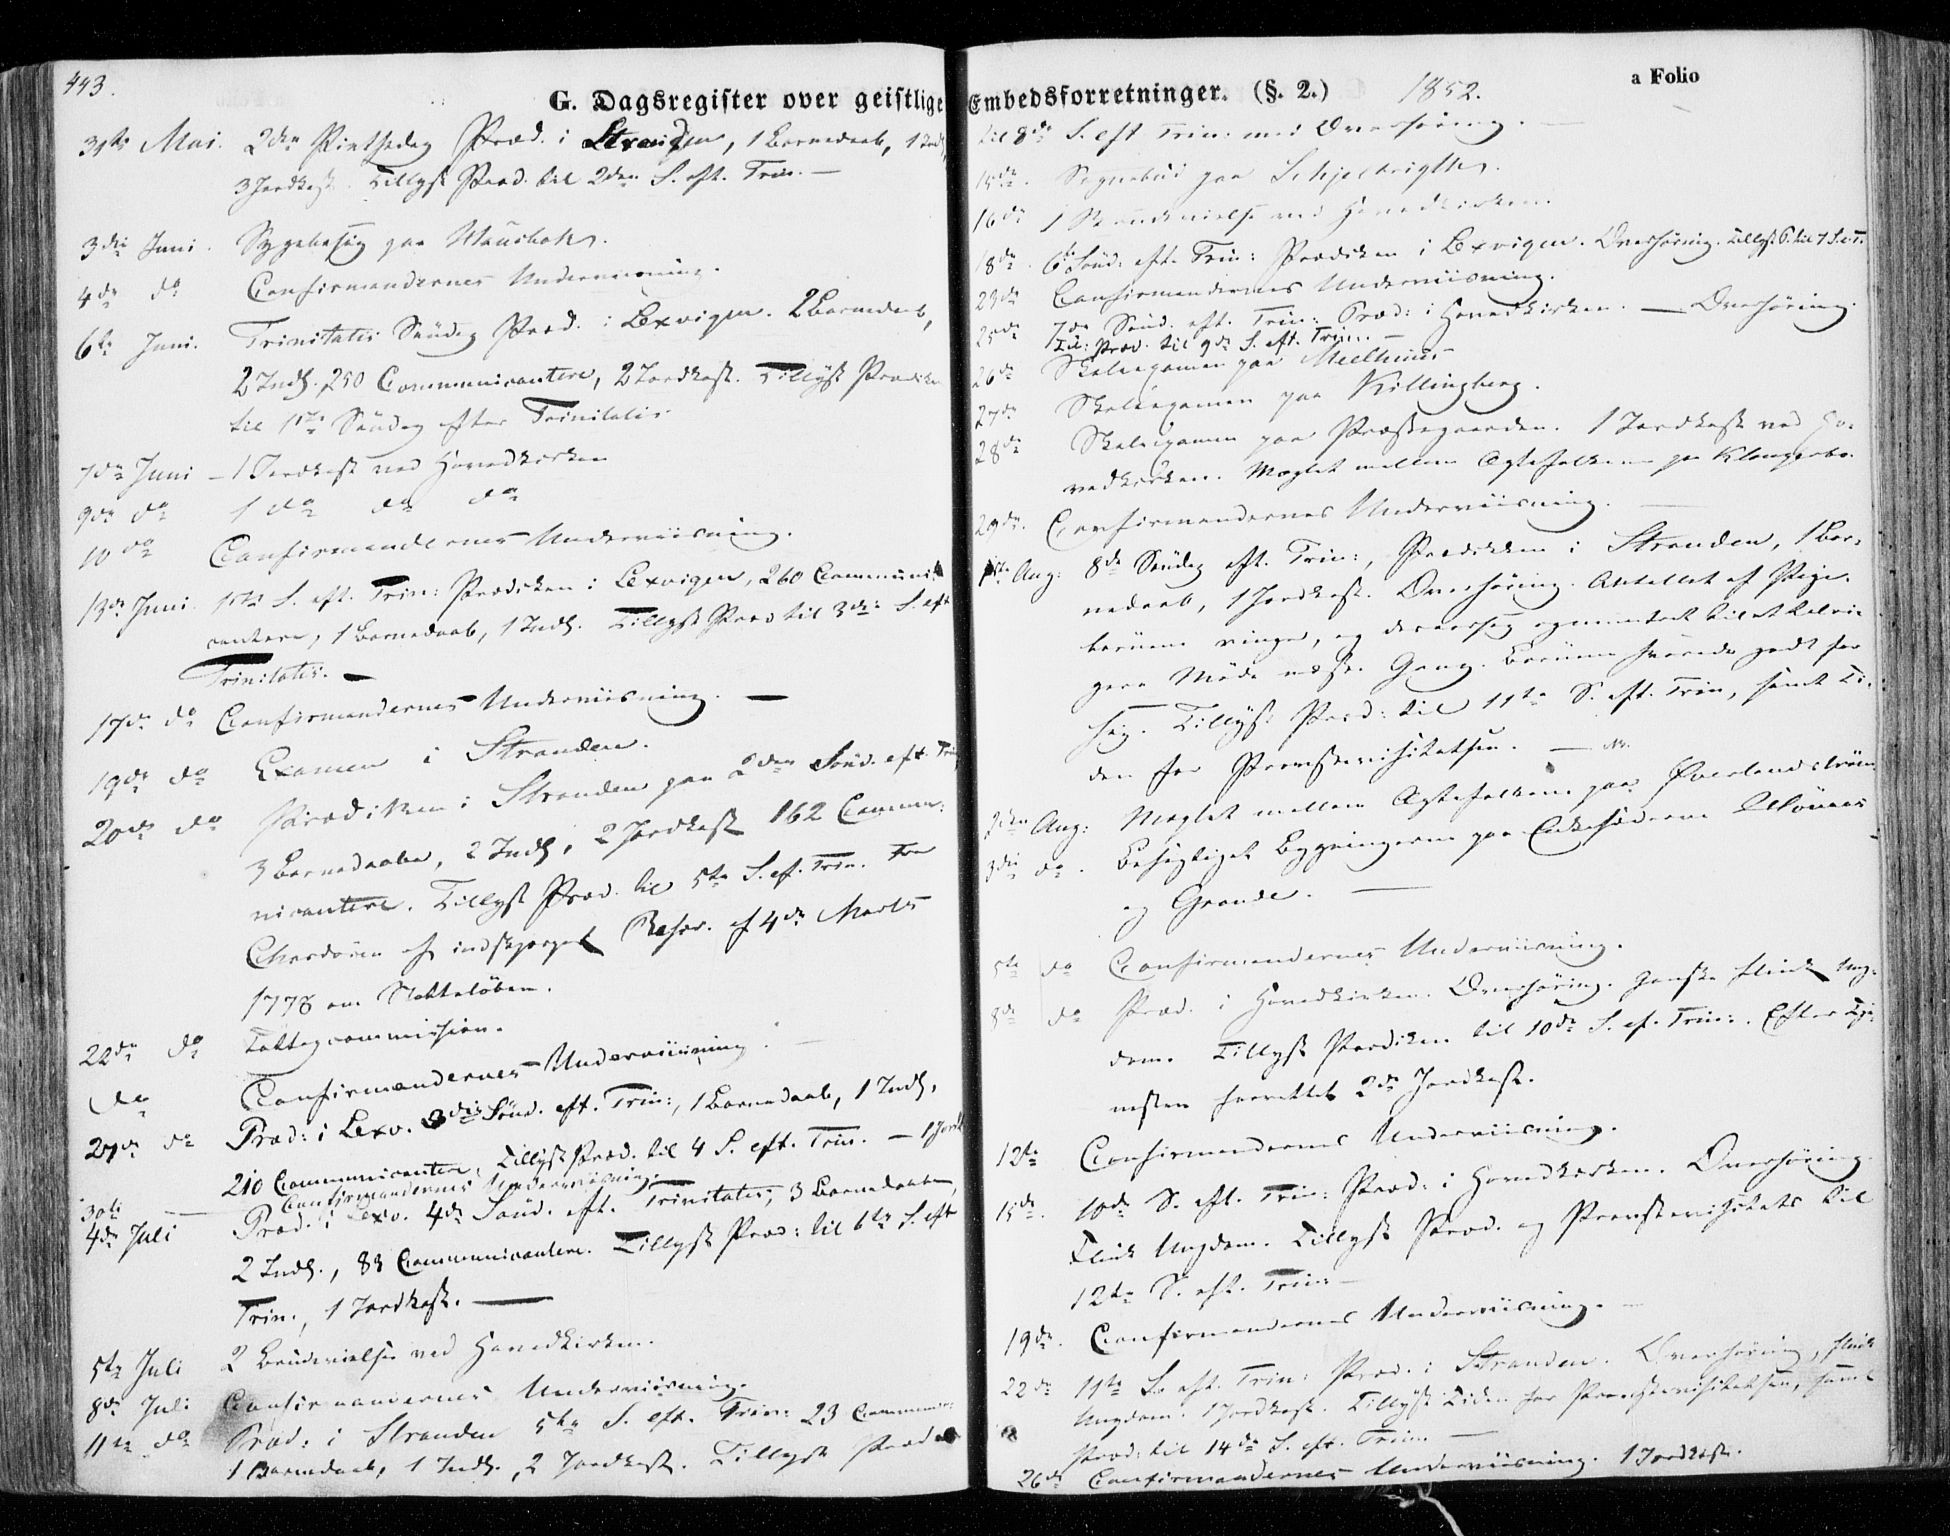 443.
G. Dagsregister over geistlige
31te Mai. 2den Pintsedag Præd. i Stranden, 1 Barnedaab, 1 Indl,
3 Jordkast. Tillyst Præd. til 2den S. eft. Trin. —
3die Juni. Sygebesøg paa
4de do Confirmandernes Underviisning.
6te Juni. Trinitatis Søndag Præd. i Lexvigen. 2 Barnedaab,
2 Indl. 250 Communicantere, 2 Jordkast. Tillyst Prædiken
til 1ste Søndag efter Trinitatis
7de Juni — 1 Jordkast ved Hovedkirken
9de do 1 do do do
10 do Confirmandernes Underviisning.
13de Juni. 1ste S. eft. Trin: Prædiken i Lexvigen, 260 Communi-
cantere, 1 Barnedaab, 1 Indl. Tillyst Præd til 3die S. eft
Trinitatis. —
17de do Confirmandernes Underviisning. —
19de do Examen i Stranden.
20de do Prædiken i Stranden paa 2den Sønd. eft. Trin,
3 Barnedaabe, 2 Indl, 2 Jordkast 162 Commu-
nicantere. Tillyst Præd. til 5te S. ef. Trin. Fra
Chordøren af Rescr. af 4de Marts
1778 om
22de do commission.
do Confirmandernes Underviisning.
27de do Præd: i Lexv. 3die Sønd. eft. Trin:, 1 Barnedaab, 1 Indl,
210 Communicantere, Tillyst Præd. til 4 S. eft. Trin. — 1 Jordk
30te — Confirmandernes Underviisning.
4de Juli Præd. i Lexv. 4de Sønd. eft. Trinitatis, 3 Barnedaabe,
2 Indl., 83 Communicantere. Tillyst Præd: til 6te S. eft
Trin., 1 Jordkast. —
5te Juli 2 Brudevielser ved Hovedkirken.
8de Juli Confirmandernes Underviisning.
11te do Præd: i Stranden 5te S. eft. Trin: 23 Commun:
1 Barnedaab, 1 Indl., 2 Jordkast. Tillyst Præd
Embedsforretninger. (§. 2.) 1852. a Folio
til 8de S. eft Trin: med Overhøring. —
15de. Sognebud paa
16de 1 Brudevielse ved Hovedkirken.
18de. 6te Sønd: eft. Trin: Prædiken i Lexvigen. Overhøring. Tillyst P. til 7 S. e. T.
23de Confirmandernes Underviisning.
25de 7de Sønd. eft. Trin: Præd: i Hovedkirken. — Overhøring.
Till: Præd. til 9de S. eft. Trin. —
26de Skoleexamen paa Meelhuus
27de Skoleexamen paa Killingberg.
28de Skoleexamen paa Præstegaarden. 1 Jordkast ved Ho-
vedkirken. Mæglet mellem Ægtefolkene paa
29de. Confirmandernes Underviisning. —
1ste Aug: 8de Søndag eft. Trin:, Prædiken i Stranden, 1 Bar-
nedaab, 1 Jordkast. Overhøring. Antallet af Pige-
børnene ringe, og derfor opmuntret til et talri-
gere Møde næste Gang. Børnene svarede godt for
sig. Tillyst Præd: til 11te S. eft. Trin, samt Ti-
den for Provstevisitatsen. —
2den Aug: Mæglet mellem Ægtefolkene paa
3die do. Besigtiget Bygningerne paa Enkesæderne
og Grande. —
5te do Confirmandernes Underviisning.
8de do Præd. i Hovedkirken. Overhøring. ganske flink Ung-
dom. Tillyst Prædiken til 10de S. ef. Trin:. Efter Tje-
nesten forrettet 2de Jordkast.
12te Confirmandernes Underviisning.
15de. 10de S. eft. Trin: Præd: i Hovedkirken. Overhøring.
Flink Ungdom. Tillyst Præd. og Provstevisitats til
12te S. eft. Trin: —
19de. Confirmandernes Underviisning. —
22de 11te S. eft. Trin: Præd: i Stranden. Overhøring, flink
Ungdom. 1 Jordkast. Tillyst Tiden for Provstevisitatsen, samt
Præd: til 14de S. eft. Trin. —
26de Confirmandernes Underviisning. 1 Jordkast.